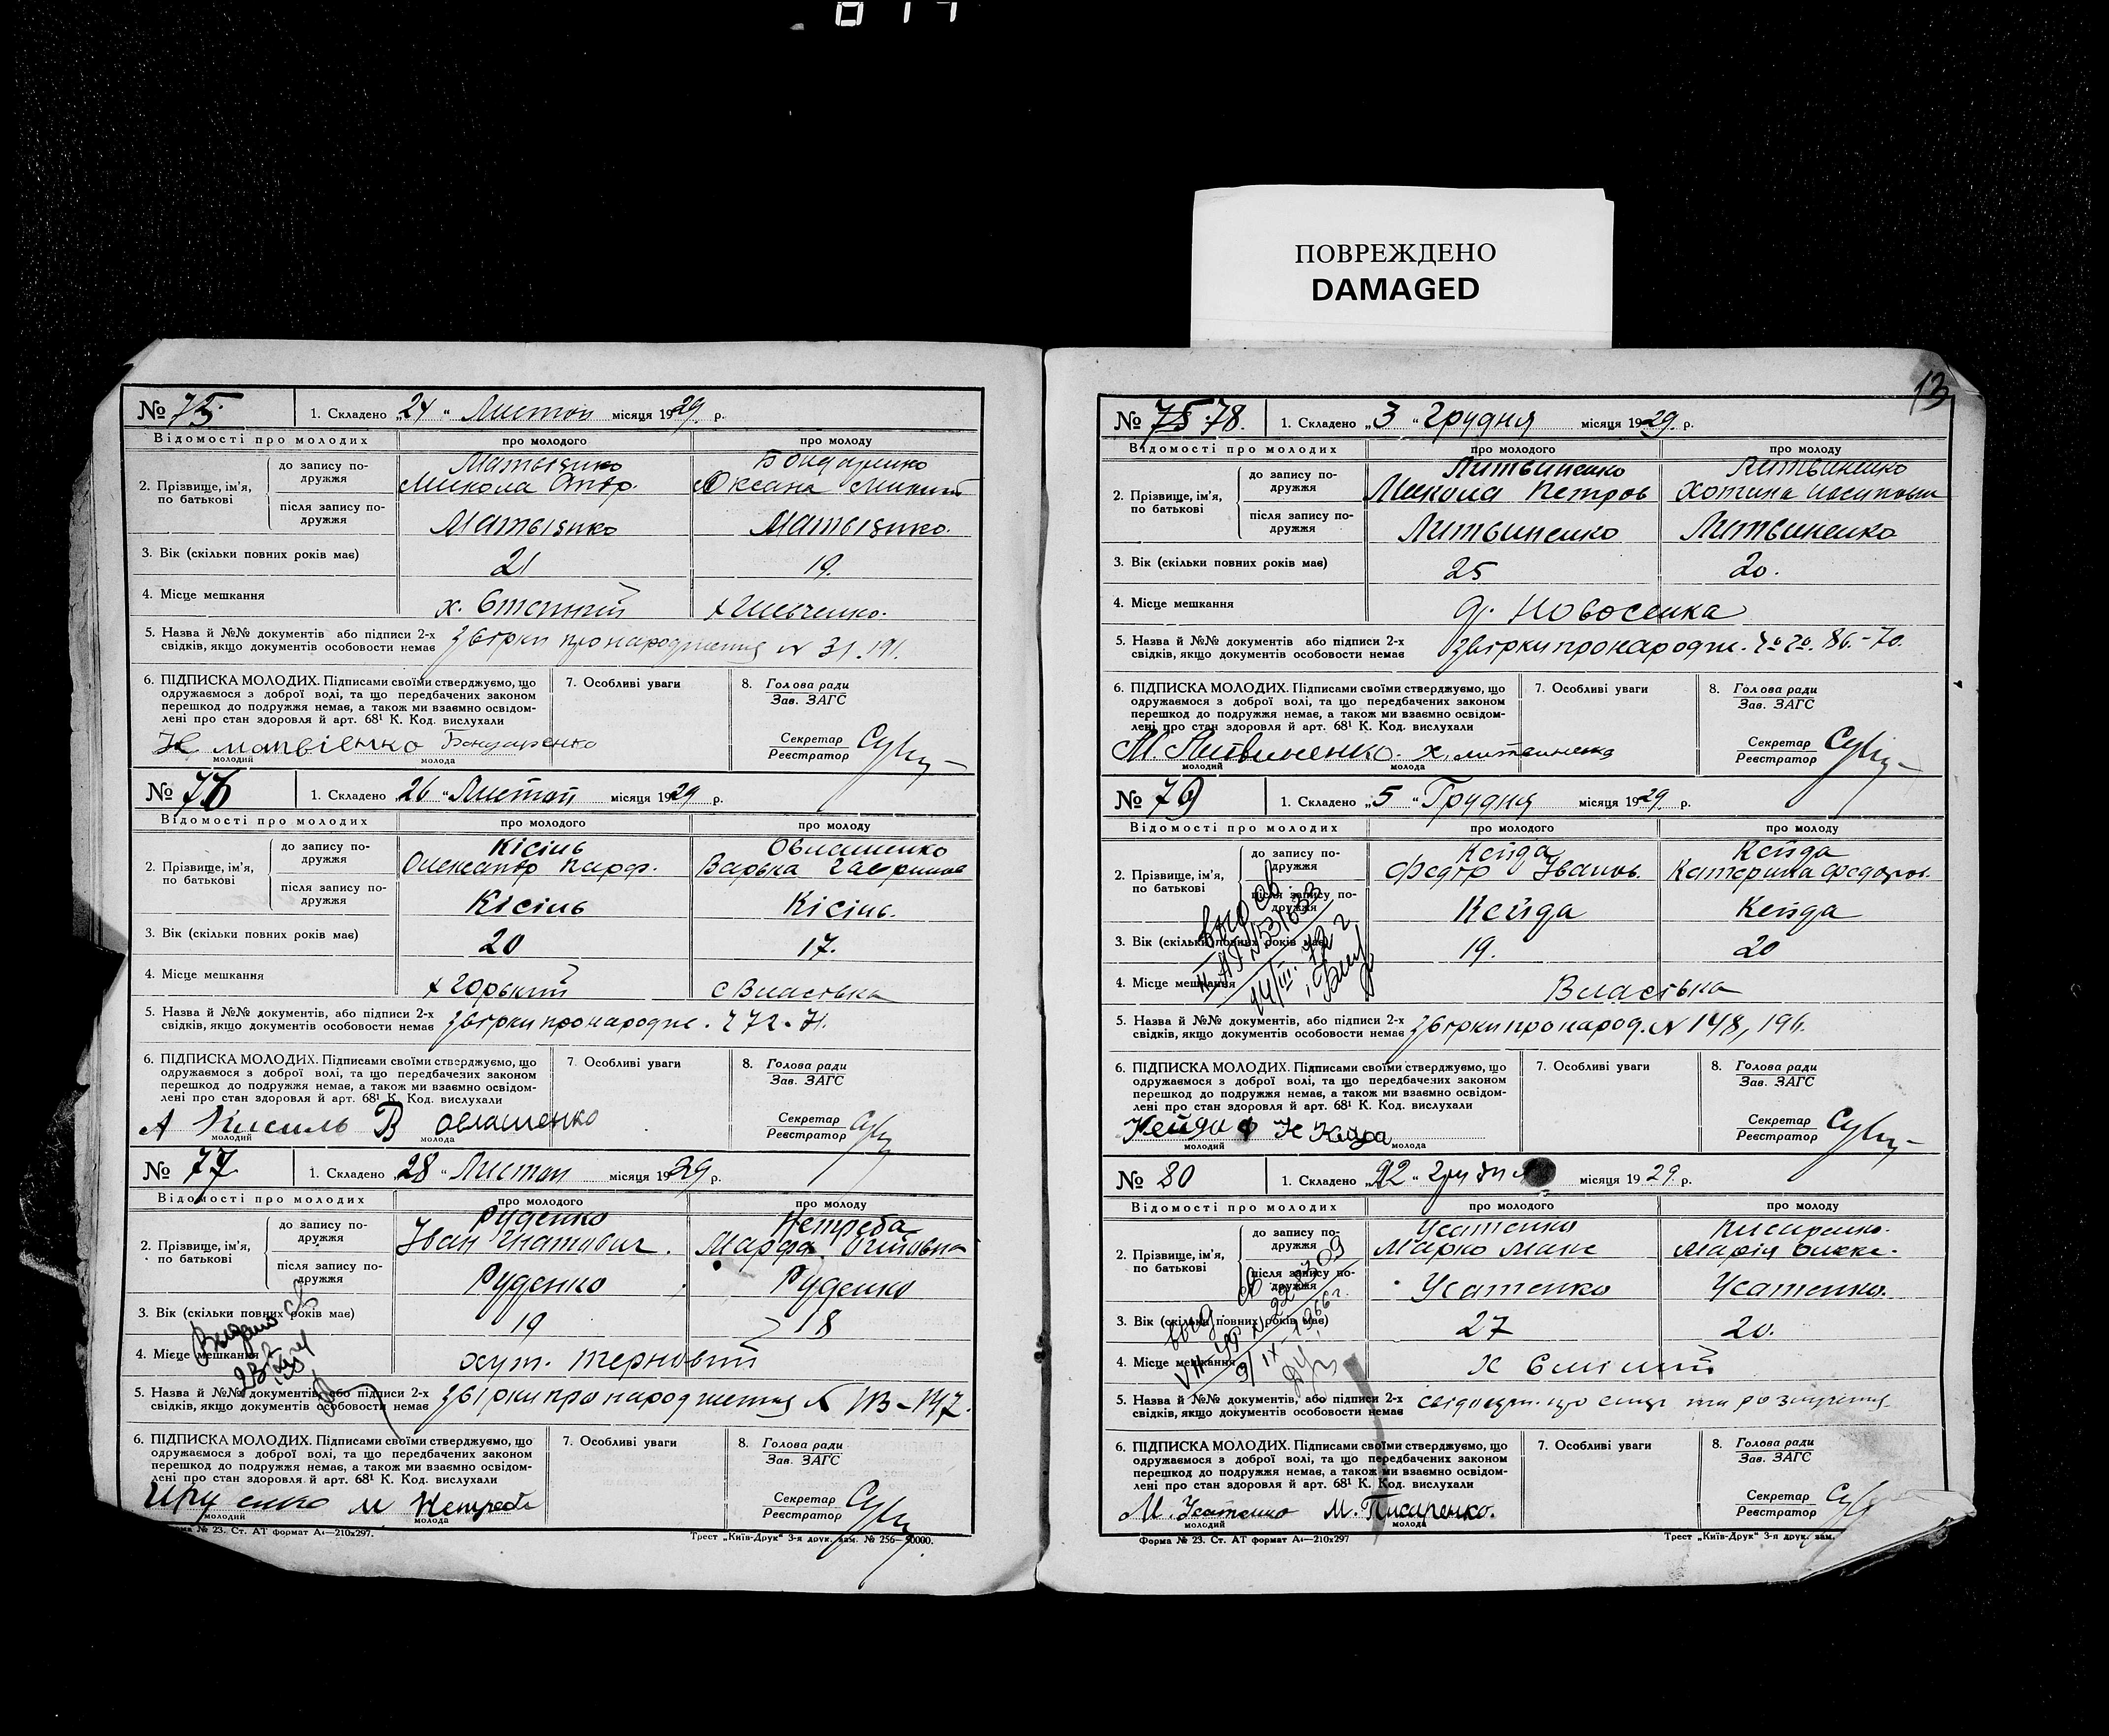 ПОВРЕЖДЕНО
DAMAGED
13
№ 75. 1. Складено „24" Листоп місяця 1929. р.
Відомості про молодих про молодого про молоду
2. Прізвище, ім'я, по батькові
до запису подружжя Матвієнко Бондаренко
Микола Оксана
після запису подружжя Матвієнко Матвієнко.
3. Вік (скільки повних років має) 21 19.
4. Місце мешкання х. х Шевченко.
5. Назва й №№ документів або підписи 2-х
свідків, якщо документів особовости немає звірки про народження № 31. 191.
6. ПІДПИСКА МОЛОДИХ. Підписами своїми стверджуємо, що
одружаємося з доброї волі, та що передбачених законом
перешкод до подружжя немає, а також ми взаємно освідом-
лені про стан здоровля й арт. 68¹ К. Код. вислухали
матвіенко Бондаренко
молодий молода
7. Особливі уваги
8. Голова ради
Зав. ЗАГС
Секретар
Реєстратор
№ 76 1. Складено 26 „Листоп місяця 1929 р.
Відомості про молодих про молодого про молоду
2. Прізвище, ім'я, по батькові
до запису подружжя Кісіль Овлашенко
Олександр Парф. Варька Гаврилов
після запису подружжя Кісіль Кісіль.
3. Вік (скільки повних років має) 20 17.
4. Місце мешкання х Горький с Власівка
5. Назва й №№ документів, або підписи 2-х
свідків, якщо документів особовости немає звірки про народже.
6. ПІДПИСКА МОЛОДИХ. Підписами своїми стверджуємо, що
одружаємося з доброї волі, та що передбачених законом
перешкод до подружжя немає, а також ми взаємно освідом-
лені про стан здоровля й арт. 68¹ К. Код. вислухали
А Кисиль В Овлашенко
молодий молода
7. Особливі уваги
8. Голова ради
Зав. ЗАГС
Секретар
Реєстратор
№ 77 1. Складено „28 „Листоп місяця 1929 р.
Відомості про молодих про молодого про молоду
2. Прізвище, ім'я, по батькові
до запису подружжя Руденко Нетреба
Іван Игнатович. Марфа
після запису подружжя Руденко Руденко
3. Вік (скільки повних років має) 19 18
4. Місце мешкання хут. Терновий
5. Назва й №№ документів, або підписи 2-х
свідків, якщо документів особовости немає звірки про народження №
Выдано св
6. ПІДПИСКА МОЛОДИХ. Підписами своїми стверджуємо, що
одружаємося з доброї волі, та що передбачених законом
перешкод до подружжя немає, а також ми взаємно освідом-
лені про стан здоровля й арт. 68¹ К. Код. вислухали
м Нетреба
молодий молода
7. Особливі уваги
8. Голова ради
Зав. ЗАГС
Секретар
Реєстратор
№ 23. Ст. АТ формат А₄—210х297. Трест „Київ-Друк" 3-я друк. зам. № 256—50000.
№ 75 78. 1. Складено „3 „Грудня місяця 1929. р.
Відомості про молодих про молодого про молоду
2. Прізвище, ім'я, по батькові
до запису подружжя Литвиненко Литвиненко
Микола Петров Хотина
після запису подружжя Литвиненко Литвиненко
3. Вік (скільки повних років має) 25 20.
4. Місце мешкання д. Новоселка
5. Назва й №№ документів або підписи 2-х
свідків, якщо документів особовости немає звірки про народже. 86.-70.
6. ПІДПИСКА МОЛОДИХ. Підписами своїми стверджуємо, що
одружаємося з доброї волі, та що передбачених законом
перешкод до подружжя немає, а також ми взаємно освідом-
лені про стан здоровля й арт. 68¹ К. Код. вислухали
М. Литвиненко. х.
молодий молода
7. Особливі уваги
8. Голова ради
Зав. ЗАГС
Секретар
Реєстратор
№ 79 1. Складено „5 „Грудня місяця 1929. р.
Відомості про молодих про молодого про молоду
2. Прізвище, ім'я, по батькові
до запису подружжя Кейда Кейда
Федір Іванов. Катерина Федоров.
після запису подружжя Кейда Кейда
3. Вік (скільки повних років має) 19. 20
4. Місце мешкання Власівка
5. Назва й №№ документів, або підписи 2-х
свідків, якщо документів особовости немає звірки про народ. № 148, 196.
14/III. 72 г
6. ПІДПИСКА МОЛОДИХ. Підписами своїми стверджуємо, що
одружаємося з доброї волі, та що передбачених законом
перешкод до подружжя немає, а також ми взаємно освідом-
лені про стан здоровля й арт. 68¹ К. Код. вислухали
Кейда Ф
молодий молода
7. Особливі уваги
8. Голова ради
Зав. ЗАГС
Секретар
Реєстратор
№ 80 1. Складено грудня місяця 1929. р.
Відомості про молодих про молодого про молоду
2. Прізвище, ім'я, по батькові
до запису подружжя Усатенко Писаренко.
Марко Макс Марія
після запису подружжя Усатенко Усатенко.
3. Вік (скільки повних років має) 27 20.
4. Місце мешкання х
5. Назва й №№ документів, або підписи 2-х
свідків, якщо документів особовости немає
9/IX-1966 г.
6. ПІДПИСКА МОЛОДИХ. Підписами своїми стверджуємо, що
одружаємося з доброї волі, та що передбачених законом
перешкод до подружжя немає, а також ми взаємно освідом-
лені про стан здоровля й арт. 68¹ К. Код. вислухали
М. Усатенко М. Писаренко.
молодий молода
7. Особливі уваги
8. Голова ради
Зав. ЗАГС
Секретар
Реєстратор
Форма № 23. Ст. АТ формат А₄—210х297 Трест „Київ-Друк" 3-я друк. зам.